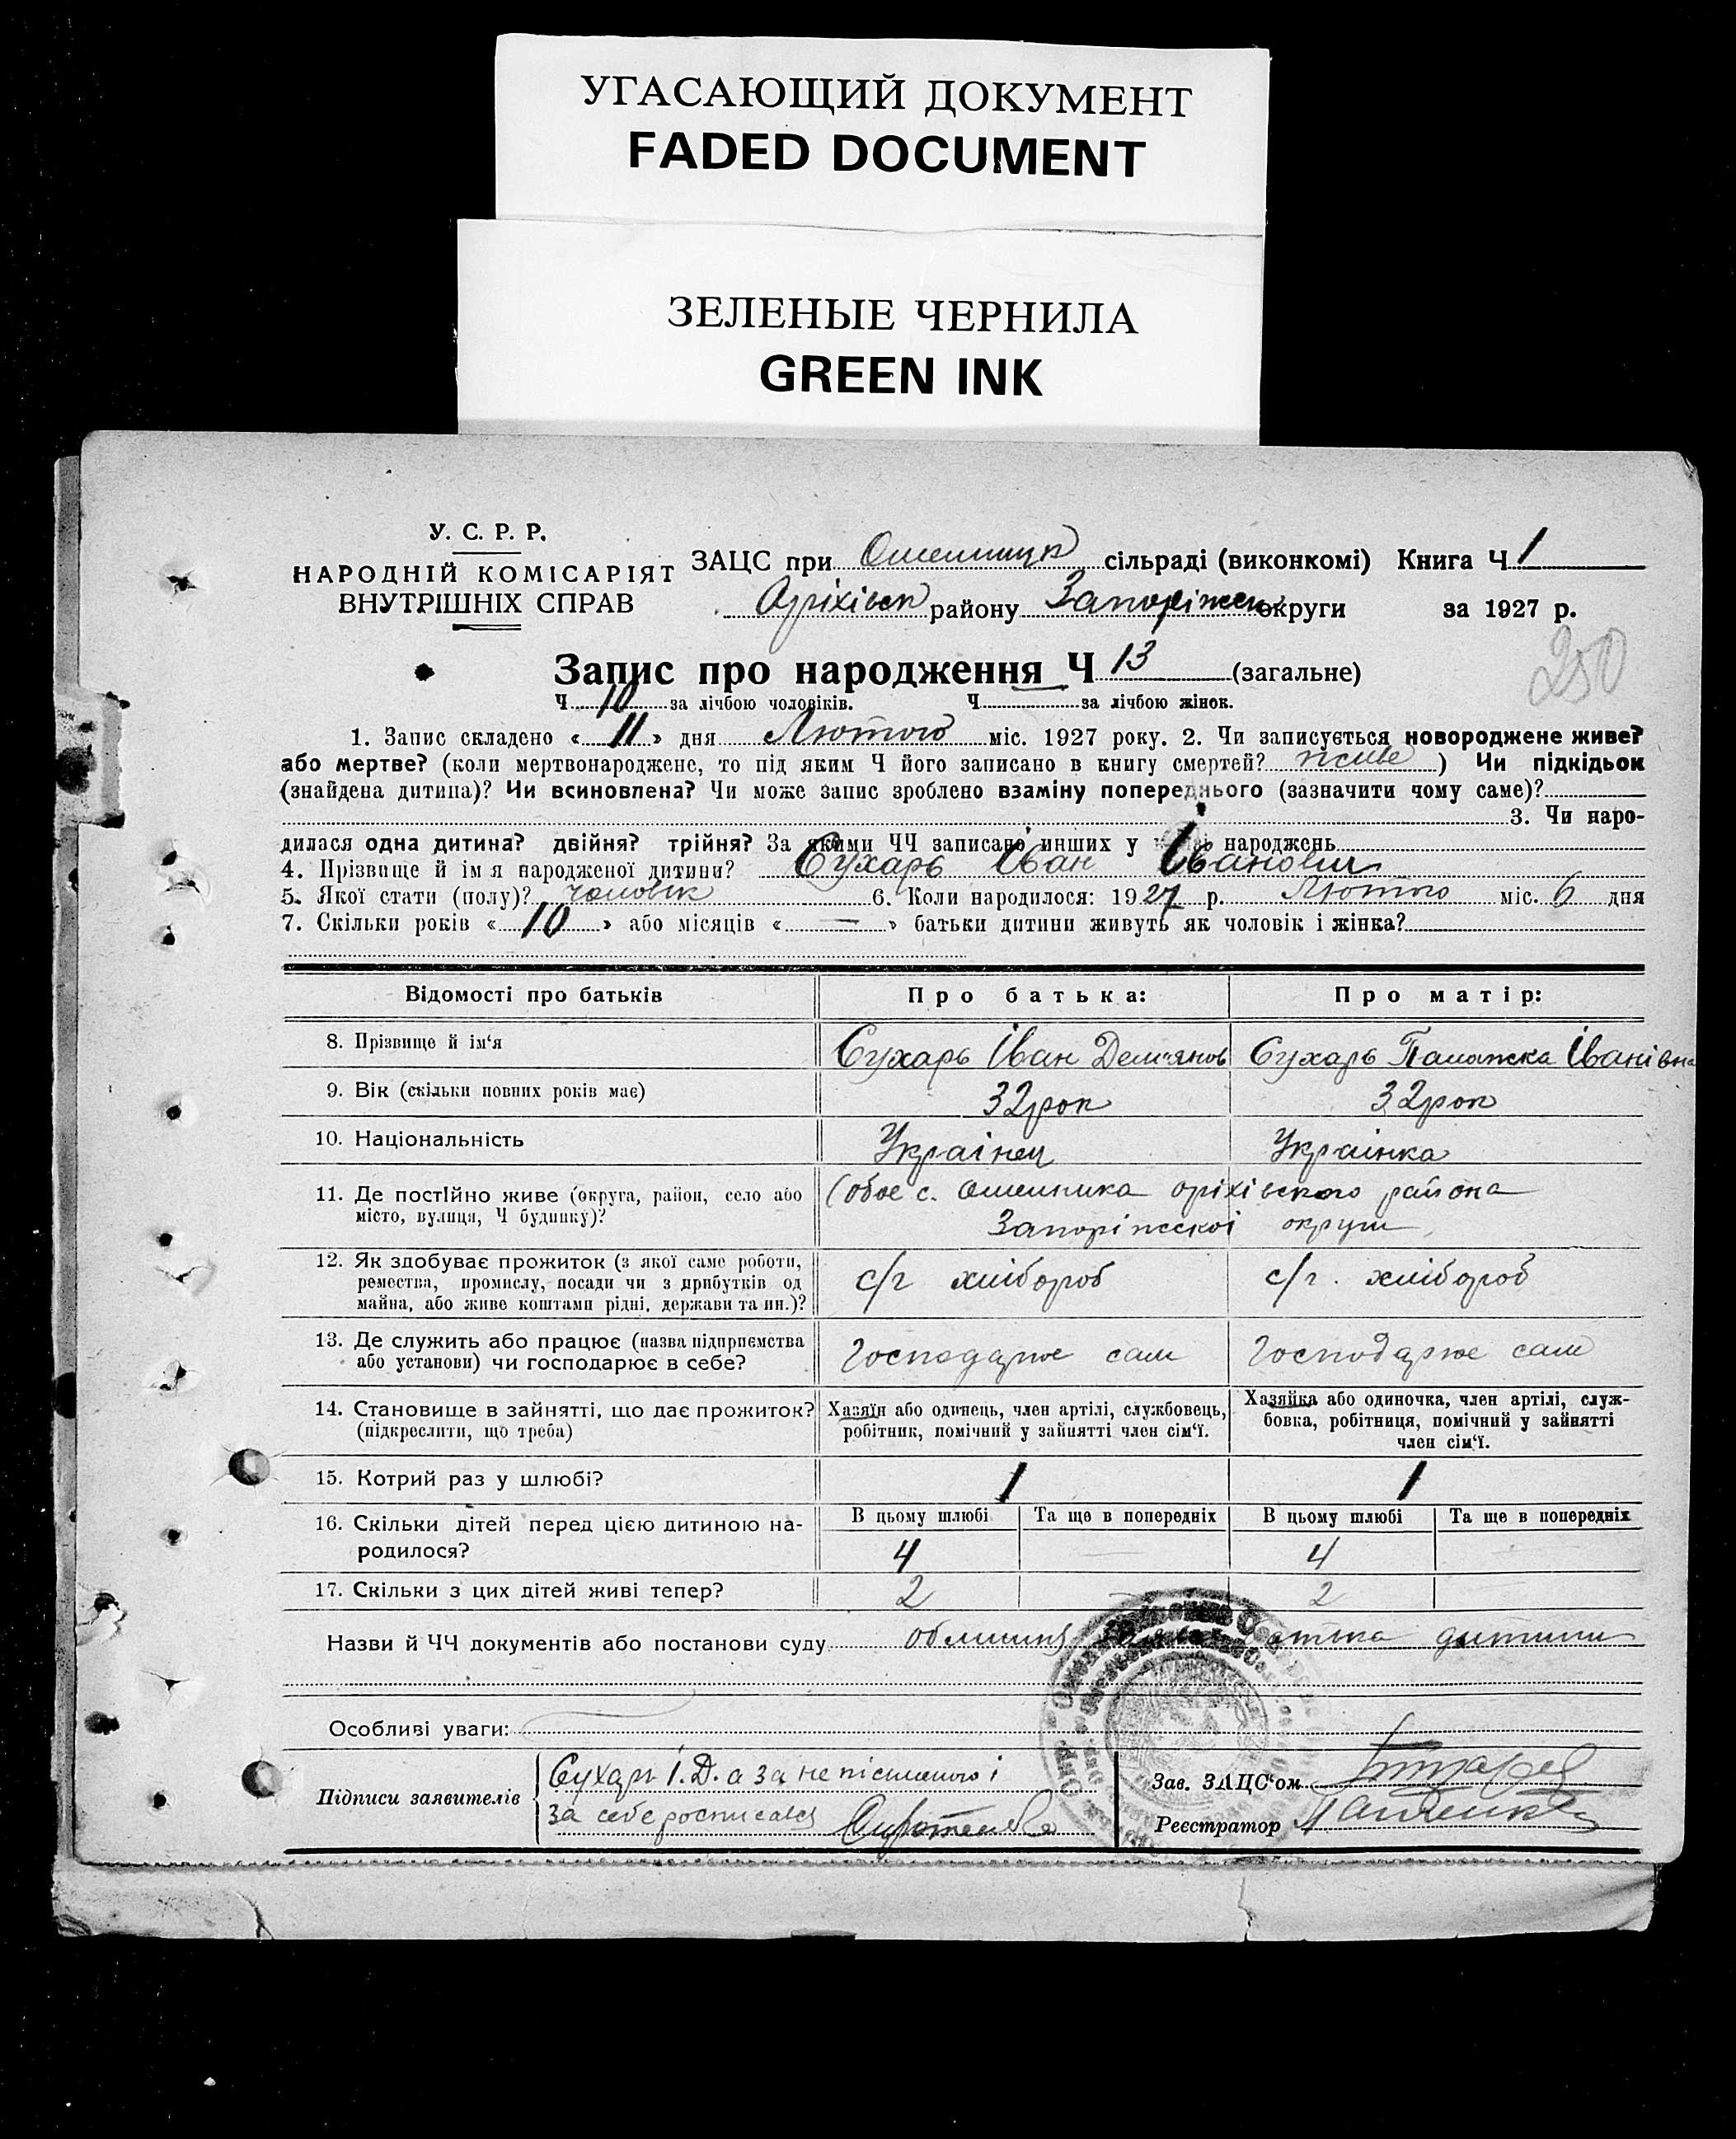 УГАСАЮЩИЙ ДОКУМЕНТ
FADED DOCUMENT
ЗЕЛЕНЫЕ ЧЕРНИЛА
GREEN INK
У. С. Р. Р.
НАРОДНІЙ КОМІСАРІЯТ
ВНУТРІШНІХ СПРАВ
ЗАЦС при Омельниц сільраді (виконкомі) Книга Ч 1
Оріхівськ району Запоріжськ округи за 1927 р.
250
Запис про народження Ч 13 (загальне)
Ч 10 за лічбою чоловіків. Ч за лічбою жінок.
1. Запис складено « 11 » дня Лютого міс. 1927 року. 2. Чи записується новороджене живе?
або мертве? (коли мертвонароджене, то під яким Ч його записано в книгу смертей? живе ) Чи підкідьок
(знайдена дитина)? Чи всиновлена? Чи може запис зроблено взаміну попереднього (зазначити чому саме)?
3. Чи наро-
дилася одна дитина? двійня? трійня? За якими ЧЧ записано инших у народжень
4. Прізвище й ім я народженої дитини? Сухарь Іван Іванович
5. Якої стати (полу)? чоловік 6. Коли народилося: 1927 р. Лютого міс. 6 дня
7. Скільки років « 10 » або місяців « — » батьки дитини живуть як чоловік і жінка?
Відомості про батьків Про батька: Про матір:
8. Прізвище й ім‘я Сухарь Іван Дем'янов Сухарь Палажка Іванівна
9. Вік (скільки повних років має) 32 рок 32 рок
10. Національність Українец Українка
11. Де постійно живе (округа, район, село або (обоє с. Омельника оріхівского района
місто, вулиця, Ч будинку)? Запоріжскоі округи
12. Як здобуває прожиток (з якої саме роботи,
ремества, промислу, посади чи з прибутків од с/г хлібороб с/г. хлібороб
майна, або живе коштами рідні, держави та ин.)?
13. Де служить або працює (назва підприємства
або установи) чи господарює в себе? Господарює сам Господарює сам
14. Становище в зайнятті, що дає прожиток? Хазяїн або одинець, член артілі, службовець, Хазяйка або одиночка, член артілі, служ-
(підкреслити, що треба) робітник, помічний у зайнятті член сім‘ї. бовка, робітниця, помічний у зайнятті
член сім‘ї.
15. Котрий раз у шлюбі? 1 1
16. Скільки дітей перед цією дитиною на- В цьому шлюбі Та ще в попередніх В цьому шлюбі Та ще в попередніх
родилося? 4 — 4 —
17. Скільки з цих дітей живі тепер? 2 2
Назви й ЧЧ документів або постанови суду дитини
Особливі уваги:
Підписи заявителів Сухарь І. Д. а за не пісьменого і
за себе росписався
Зав. ЗАЦС‘ом
Реєстратор